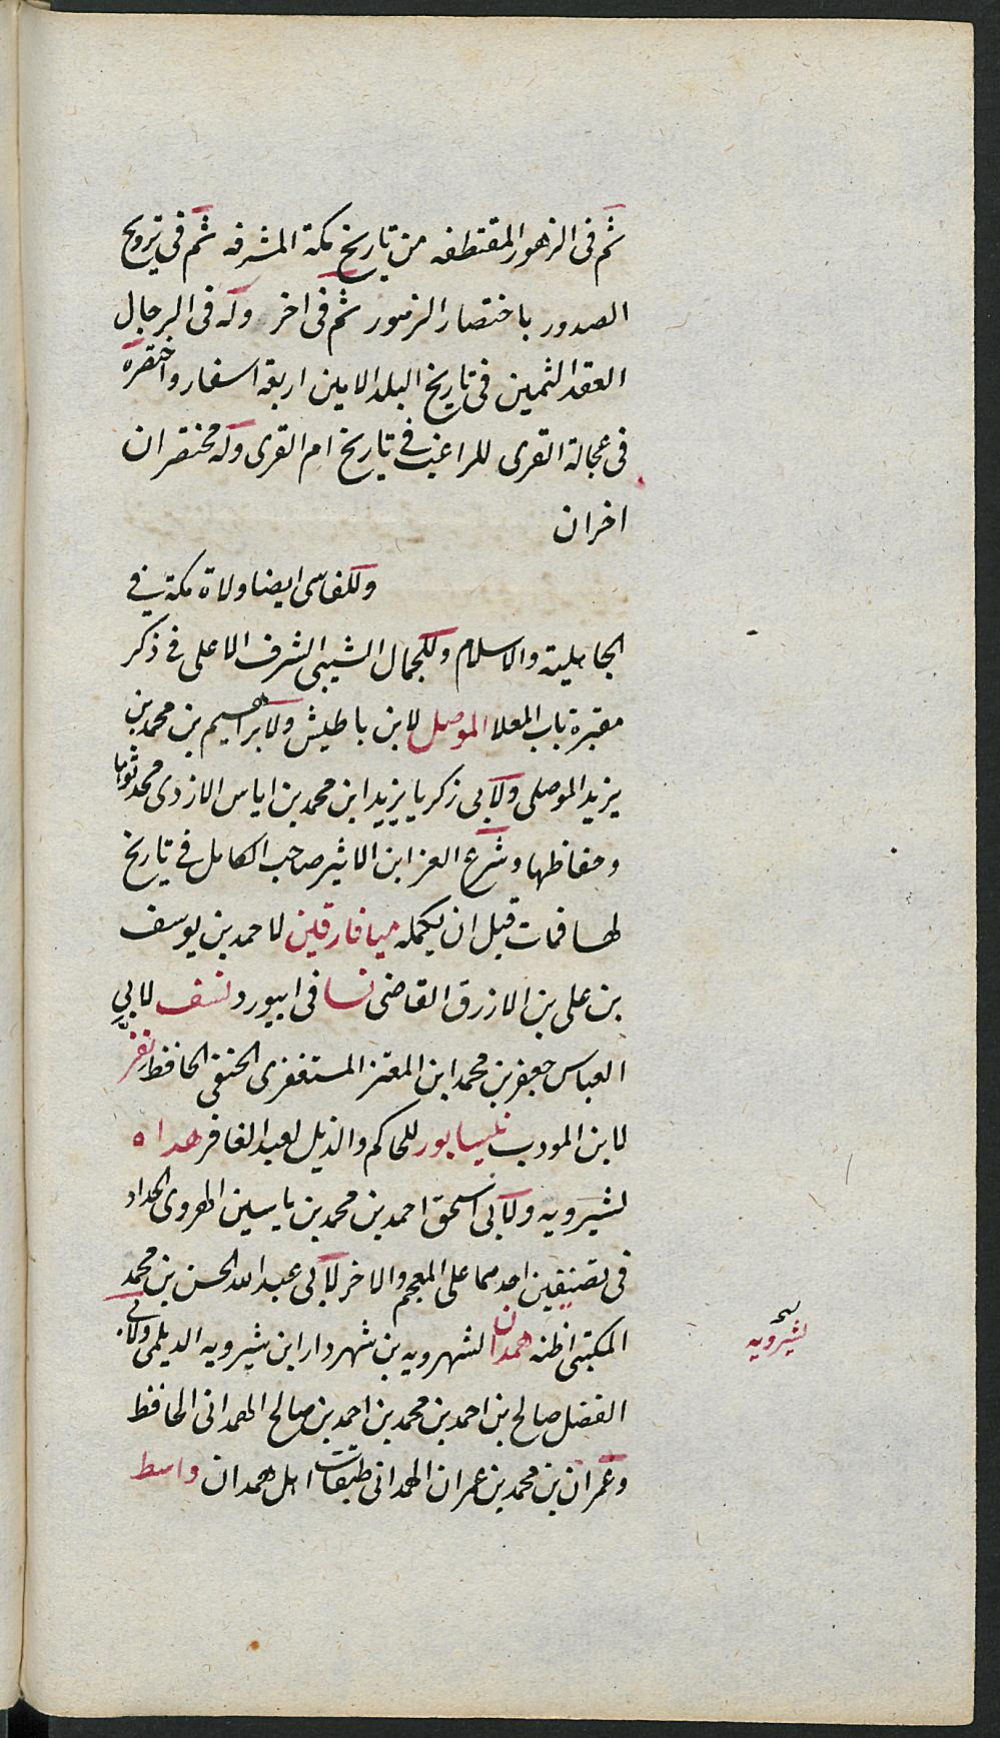 ثم فى الزهور المقتطفه من تاريخ مكة المشرفه ثم فى ترويح
الصدور باختصار الزهور ثم فى اخر وله فى الرجال
العقد الثمين فى تاريخ البلد الامين اربعة اسفار واختصره
فى عجالة القرى للراغب فى تاريخ ام القرى وله مختصران
اخران
وللفاسى ايضا ولاة مكة فى
الجاهلية والاسلام وللجمال الشيبى الشرف الاعلى فى ذكر
مقبرة باب المعلا الموصل لابن باطيش ولابراهيم بن محمد بن
يزيد الموصلى ولابى زكريا يزيد ابن محمد بن اياس الازدى محدثوها
وحفاظها وشرع العز ابن الاثير صاحب الكامل فى تاريخ
لها فمات قبل ان يكمله ميافارقين لاحمد بن يوسف
بن على بن الازرق القاضى نسا فى ابيورد نسف لابى
العباس جعفر بن محمد ابن المعتز المستغفرى الحنفى الحافظ نفزه
لابن المودب نيسابور للحاكم والذيل لعبد الغافر هداه
لشيرويه ولابى اسحق احمد بن محمد بن ياسين الهروى الحداد
فى تصنيفين احدهما على المعجم والاخر لابى عبد الله الحسن بن محمد
المكتبى اظنه همدان لشهرويه بن شهردار ابن شيرويه الديلمى ولابى
لشيرويه
الفضل صالح بن احمد بن محمد بن احمد بن صالح الهمدانى الحافظ
وعمران بن محمد بن عمران الهمدانى طبقات اهل همدان واسط